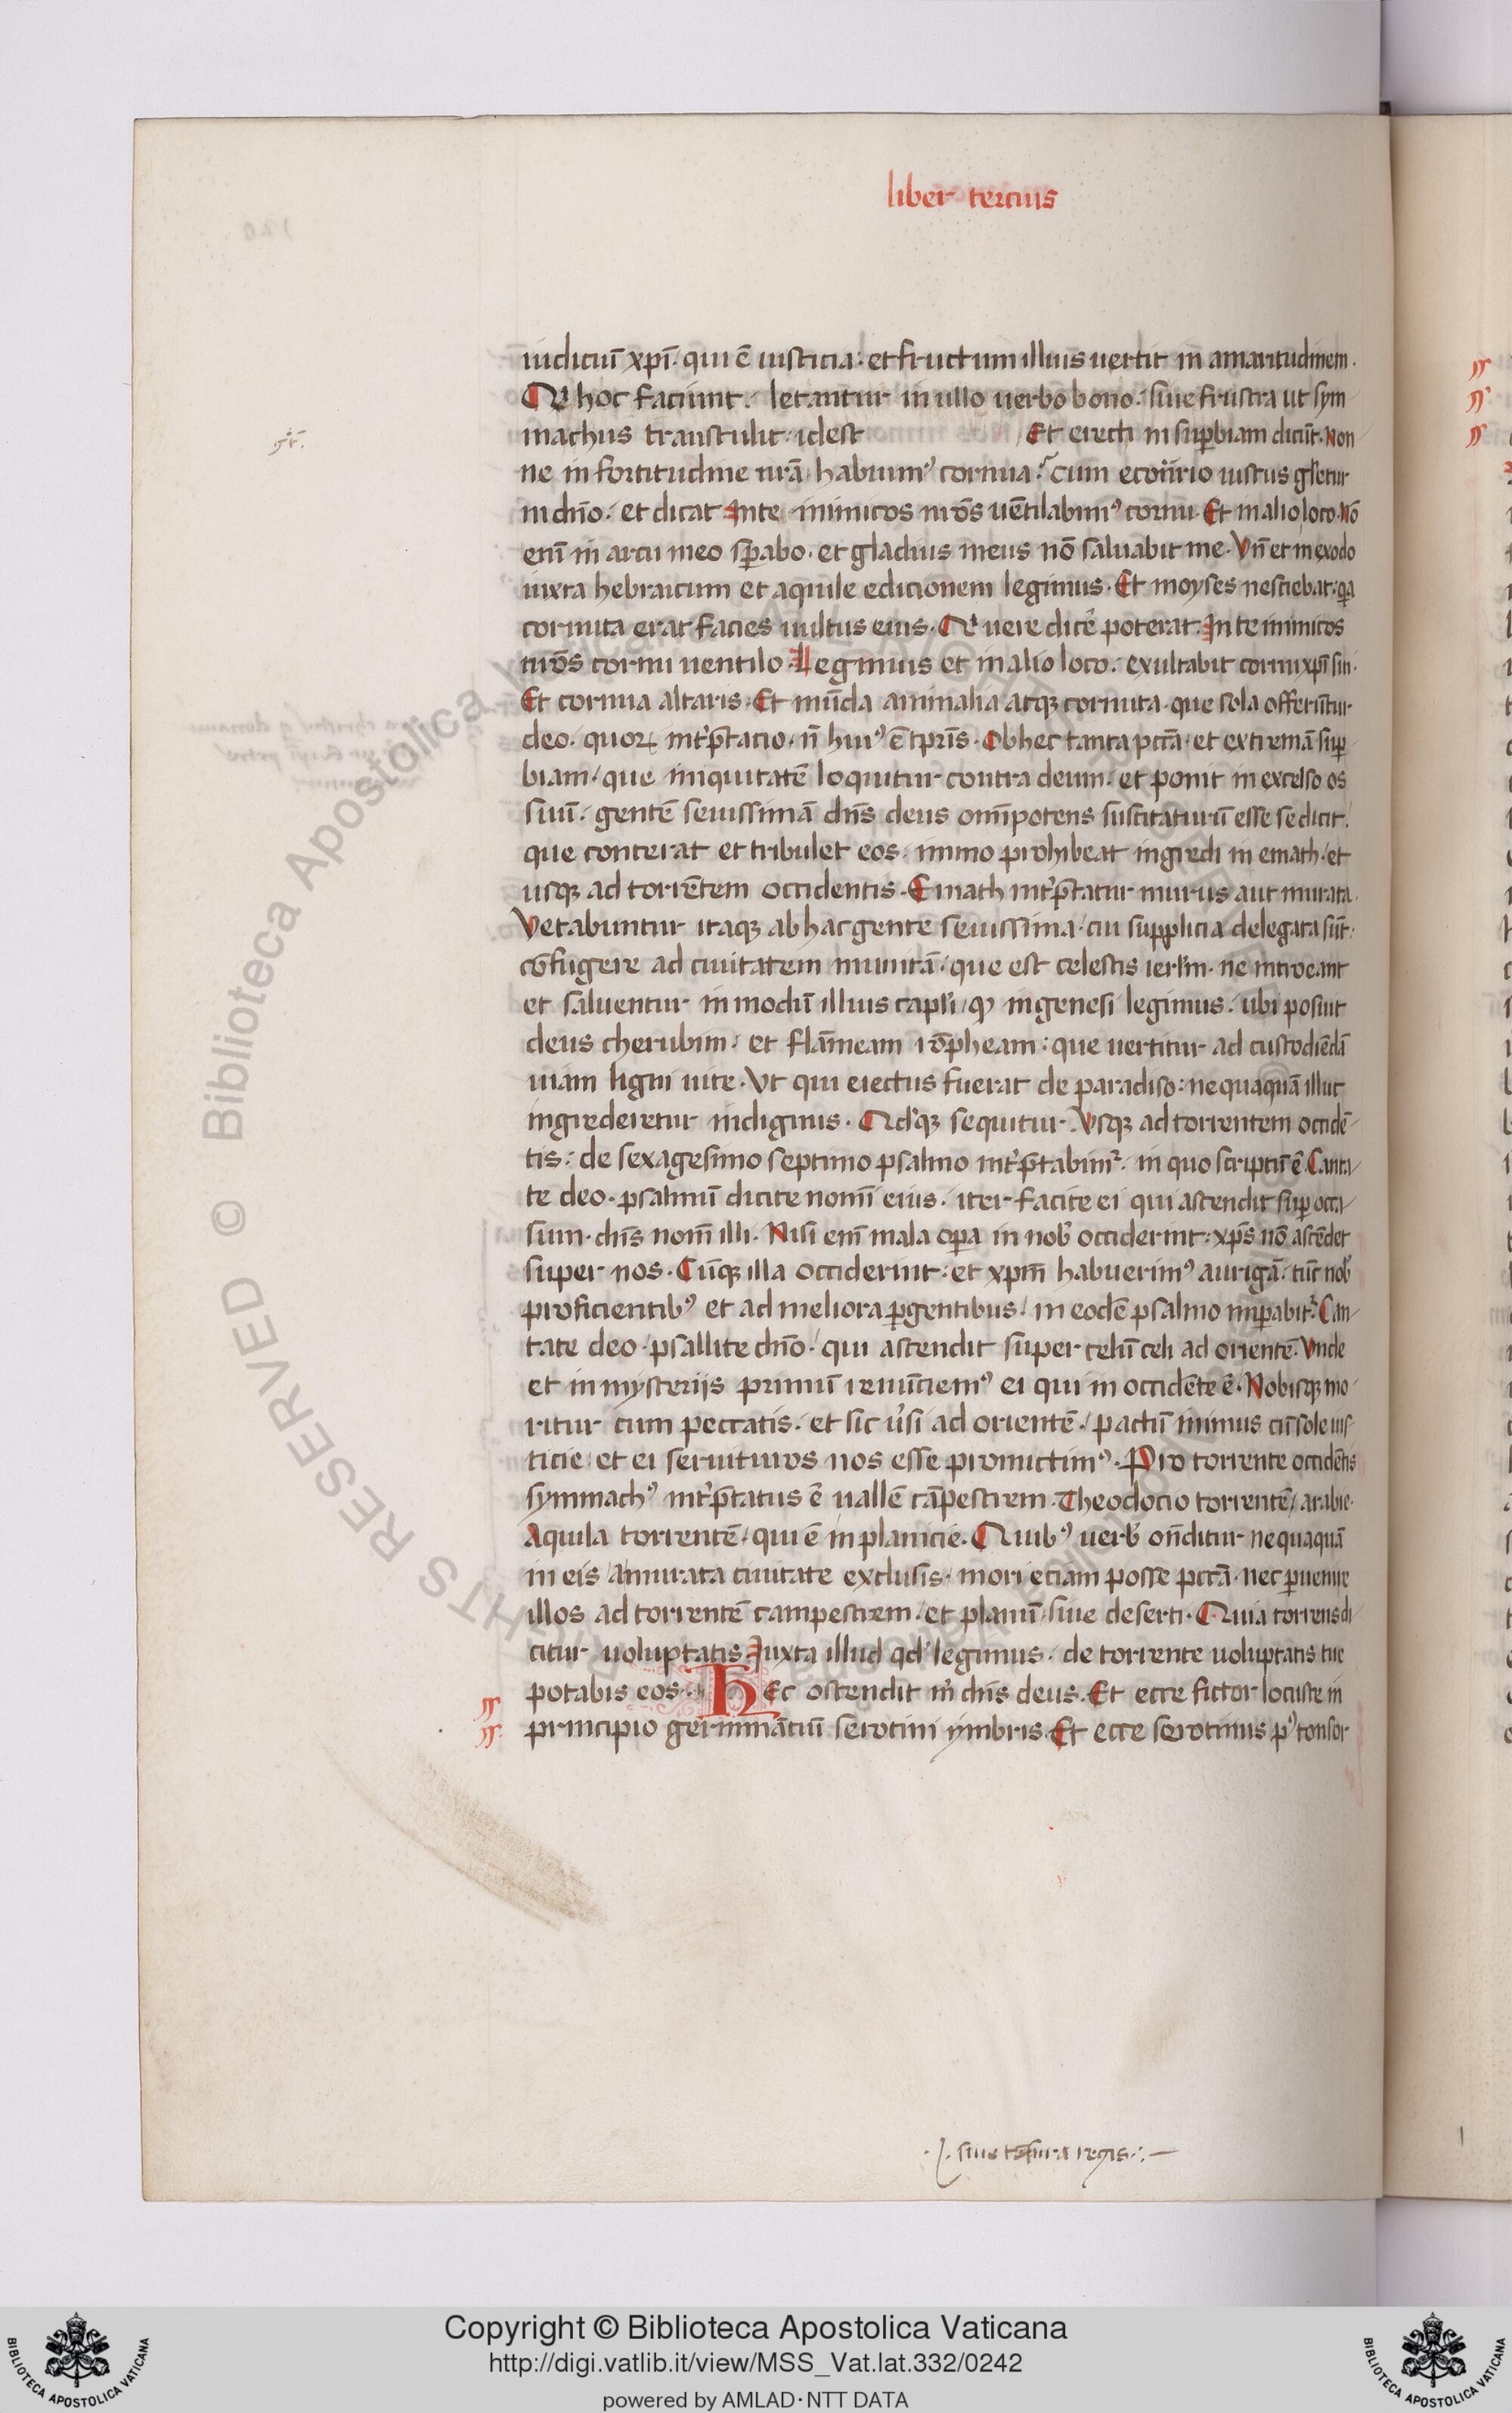 liber tercius
iudiciū xpī. qui ē iusticia: et fructum illius uertit in amaritudinem.
Qui hoc faciunt. letantur in ullo uerbo bono. siue frustra ut sym
machus transtulit: idest Et erecti in sup̱biam dicūt. Non
gr̄.
ne in fortitudine nr̄a habuim⁹ cornua? Cum econtrario iustus gl̄etur
in dn̄o. et dicat In te inimicos nr̄os uētilabim⁹ cornu. Et in alio loco. Nō
enī in arcu meo sp̱abo. et gladius meus nō saluabit me. Vn̄ et in exodo
iuxta hebraicum et aquile edicionem legimus. Et moyses nesciebat. qa
cornuta erat facies uultus eius. Qui uere dicē poterat. In te inimicos
nr̄os cornu uentilo. Legimus et in alio loco. exultabit cornu xpī sui.
Et cornua altaris. Et mūda animalia atqꝫ cornuta. que sola offerūtur
deo. quoꝝ int̄p̱tacio. n̄ hui⁹ ē tp̄ris. Ob hec tanta pctā. et extremā sup̱
biam. que iniquitatē loquitur contra deum. et ponit in excelso os
suū. gentē seuissimā dn̄s deus omīpotens suscitaturū esse se dicit.
que conterat et tribulet eos. immo prohibeat ingredi in emath. et
usqꝫ ad torrētem occidentis. Emath int̄p̱tatur murus aut murata.
Vetabuntur itaqꝫ ab hac gente seuissima. cui supplicia delegata sūt.
cōfugere ad ciuitatem munitā. que est celestis ierl̄m. ne introeant
et saluentur in modū illius capl̄i. qꝫ in genesi legimus. ubi posuit
deus cherubim. et flāmeam rōpheam: que uertitur ad custodiēdā
uiam ligni uite. Vt qui eiectus fuerat de paradiso: nequaquā illuc
ingrederetur indignus. Ad'qꝫ sequitur. Vsqꝫ ad torrentem occidē
tis: de sexagesimo septimo psalmo int̄p̱tabimr. in quo scriptū ē. Canta
te deo. psalmū dicite nomī eius. iter facite ei qui ascendit sup̱ occa
sum. dn̄s nom̄ illi. Nisi enī mala op̱a in nob̄ occiderint: xp̄s nō ascēdet
super nos. Cūqꝫ illa occiderint: et xpm̄ habuerim⁹ aurigā. tūc nob̄
proficientib⁹ et ad meliora p̱gentibus. in eodē psalmo imp̱abitr. Can
tate deo. psallite dn̄o. qui ascendit super celū celi ad orientē. Vnde
et in mysterijs primū renūciem⁹ ei qui in occidēte ē. Nobisqꝫ mo
ritur cum peccatis. et sic u̓si ad orientē. pactū inimus cū sole ius
ticie. et ei seruituros nos esse promictim⁹. Pro torrente occidētis
symmach⁹ int̄p̱tatus ē uallē cāpestrem. Theodocio torrentē. arabie.
Aquila torrentē. qui ē in planicie. Quib⁹ uerb̄ on̄ditur nequaquā
in eis amurata ciuitate exclusis. mori eciam posse pctā. nec p̱uenire
illos ad torrentē campestrem. et planū. siue deserti. Quia torrens di
citur uoluptatis. Iuxta illud qd' legimus. de torrente uoluptatis tue
potabis eos. Hec ostendit m̄ dn̄s deus. Et ecce fictor locuste in
principio germinātiū serotini ymbris. Et ecce serotinus p⁹ tonsor
siue tōsura regis
Copyright © Biblioteca Apostolica Vaticana
http://digi.vatlib.it/view/MSS_Vat.lat.332/0242
powered by AMLAD · NTT DATA
BIBLIOTECA APOSTOLICA VATICANA
BIBLIOTECA APOSTOLICA VATICANA